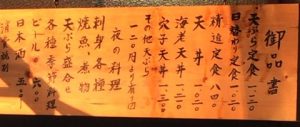 御品書
天ぷら定食 一、二〇〇
日替わり定食 一、〇〇〇
精進定食 八四〇
天丼 一、〇〇〇
海老天丼 一、二〇〇
穴子天丼 一、三〇〇
その他天ぷら
一二〇円より有ります
夜の料理
刺身各種
焼魚、煮物
天ぷら盛合せ
各種季節料理
ビール 六〇〇
日本酒 五〇〇
消費税別